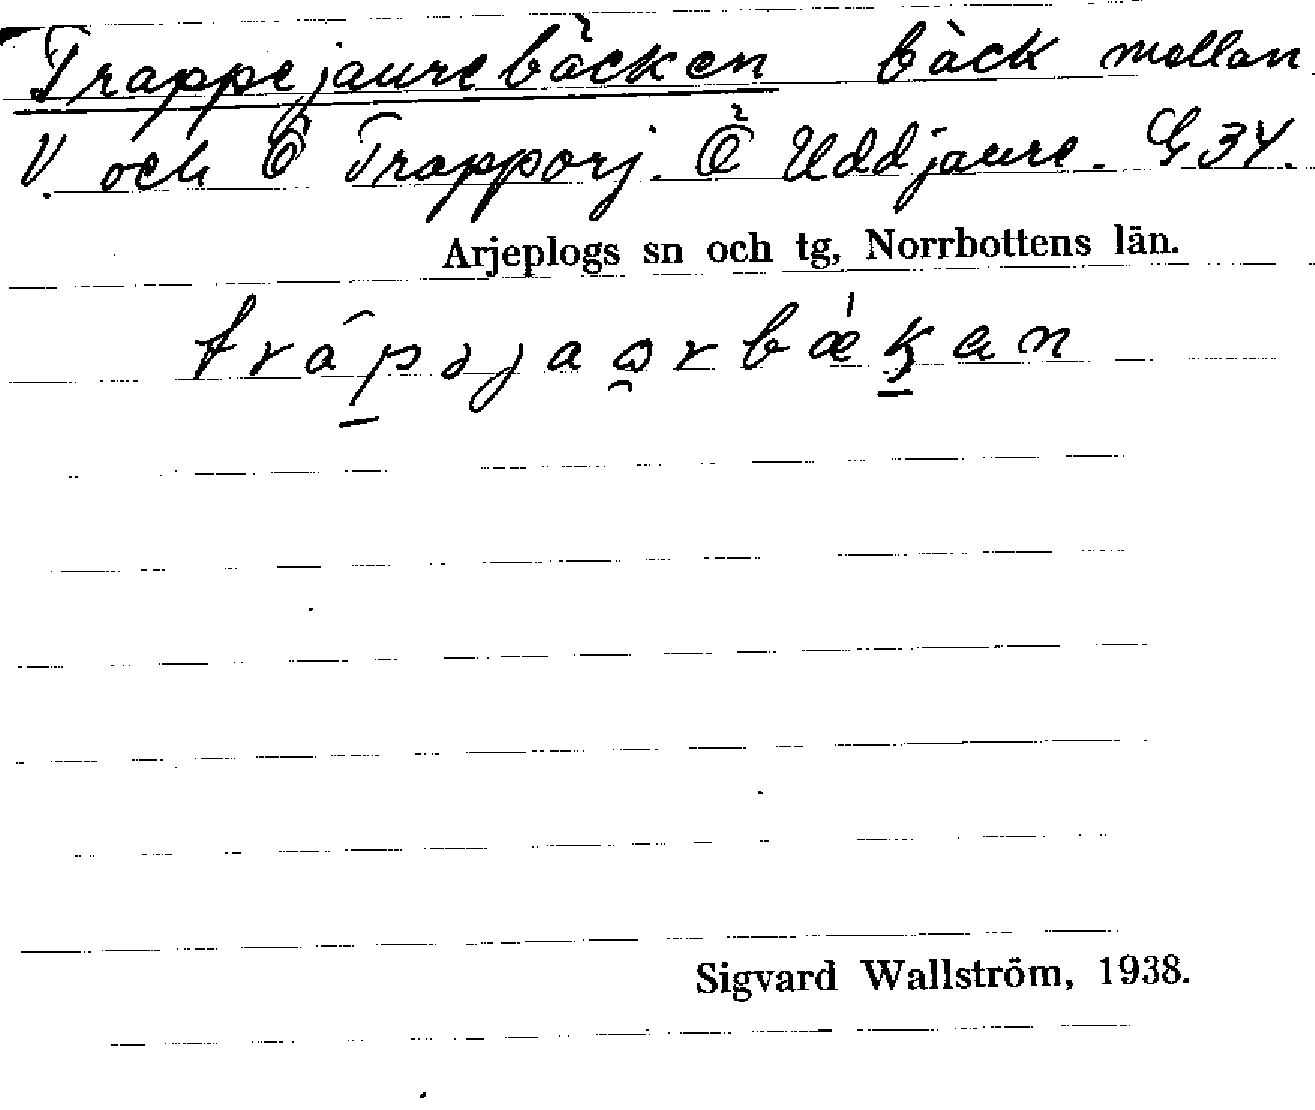 Trappejaurebäcken bäck mellan
V. och Ö Trapporj. Ö Uddjaure. G 34.
Arjeplogs sn och tg, Norrbottens län.
Sigvard Wallström, 1938.